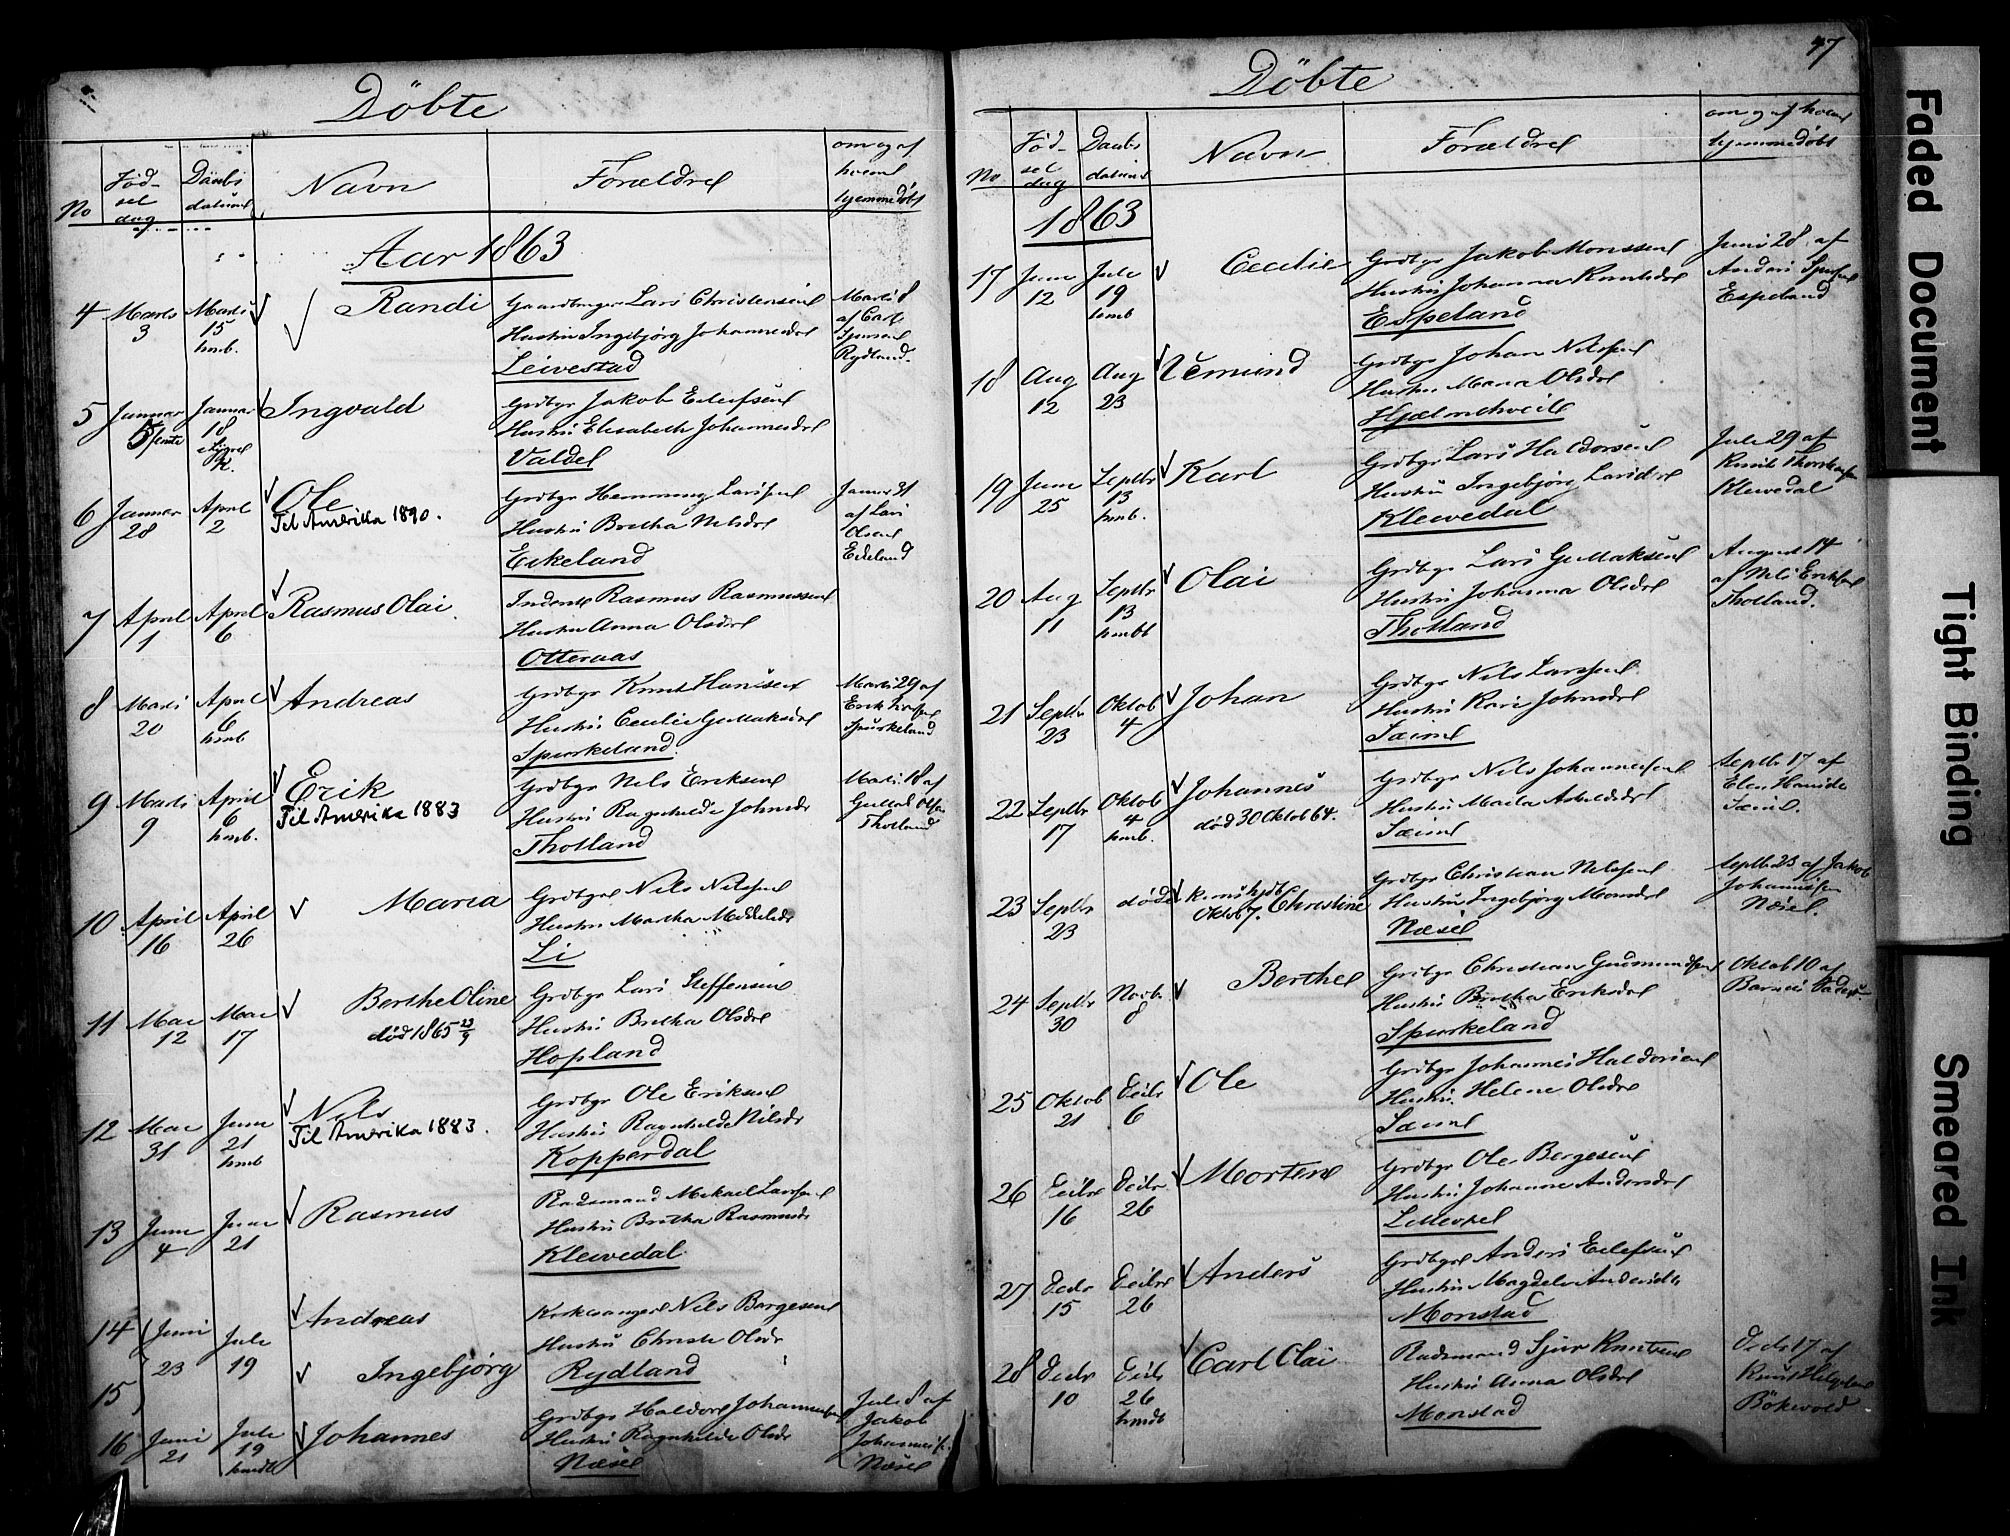 Döbte
No
Fød-
sel
dag
Daabs
datum
Navn
Forældre
om og af
hvem
hjemmedøbt
Aar 1863
4 Marts 3
Marts 15 hmb.
Randi
Gaardbruger Lars Christensen
Hustru Ingebjørg Johannesdr
Leivestad
Marts 8
af Carl
Rydland.
5 Januar 5
Januar 18
Ingvald
Grdbgr Jakob Eilefsen
Hustru Elisabeth Johannesdr
Valdel
6 Januar 28
April 2
Ole
Til Amerika 1890.
Grdbgr Hemming Larssen
Hustru Bretha Nelsdr
Eikeland
Januar 31
af Lars
Olsen
Eikeland
7 April 1
April 6
Rasmus Olai.
Inderst Rasmus Rasmussen
Hustru Anna Olsdr
Otteraas
8 Marts 20
April 6 hmb
Andreas
Grdbgr Knut Hansen
Hustru Cecilie Gullaksdr
Spurkeland.
Marts 29 af
Erik
Spurkeland
9 Marts 9
April 6 hmb.
Erik
Til Amerika 1883
Grdbgr Nels Eriksen
Hustru Ragnhilde Johnsdr
Thotland
Marts 18 af
Thotland
10 April 16
April 26
Maria
Grdbgr Nils Nilssen
Hustru Martha
Li
11 Mai 12
Mai 17
Berthe Oline
død 1865 23/9
Grdbgr Lars Steffensen
Hustru Brethe Olsdr
Hopland
12 Mai 31
Juni 21 hmb
Nils
Til Amerika 1883.
Grdbgr Ole Eriksen
Hustru Ragnhilde Nilsdr
Kopperdal
13 Juni 4
Juni 21
Rasmus
Radsmand Mikael Larssen
Hustru Bretha Rasmusdr
Kleivedal
14 Juni 23
Juli 19
Andreas
Kirkesanger Nils Børgesen
Hustru Christi Olsdr
15
Ingebjørg
Rydland
16 Juni 21
Juli 19 hmdt
Johannes
Grdbgr Haldor Johannessen
Hustru Ragnhilde Olsdr
Næsse
Juli 8 af
Jakob
Johanness.
Næsse
47
Döbte
No
Fød-
sel
dag
Daabs
datum
Navn
Forældre
om og af hvem
hjemmedøbt
1863
17 Juni 12
Juli 19 hmb
Cecilie
Grdbgr Jakob Monssen
Hustru Johanna Knutsdr
Espeland
Juni 28. af
Anders
Espeland
18 Aug 12
Aug 23
Vemund
Grdbgr Johan Nilssen
Hustru Maria Olsdr
Hjælmehveit
19 Juni 25
Septbr 13 hmb.
Karl
Grdbgr Lars Haldorsen
Hustru Ingebjørg Larsdr
Kleivedal
Juli 29 af
Knut
Kleivedal
20 Aug 11
Septbr 13 hmbt
Olai
Grdbgr Lars Gullaksen
Hustru Johanna Olsdr
Thotland
August 14
af Nels Eriksen
Thotland.
21 Septbr 23
Oktob 4
Johan
Grdbgr Nils Larssen
Hustru Kari Johnsdr
Sæim
22 Septbr 17
Oktob 4 hmb
Johannes
død 30 Oktob 64.
Grdbgr Nils Johannessen
Hustru Marta
Sæim
Septbr 17 af
Sæim.
23 Septbr 23
døde
Oktob 7. Christine
Grdbgr Christian Nilssen
Hustru Ingebjørg Monsdr
Næsse
Septbr 23 af Jakob
Johannessen
Næsse.
24 Septbr 30
Novbr 8
Berthe
Grdbgr Christian Gudmundsen
Hustru Bretha Eriksdr
Spurkeland
Oktob 10 af
Barnets Fader
25 Oktob 21
Decbr 6
Ole
Grdbgr Johannes Haldorsen
Hustru Helene Olsdr
Sæim
26 Decbr 16
Decbr 26
Morten
Grdbgr Ole Børgesen
Hustru Johanne Andersdr
27 Decbr 15
Decbr 26
Anders
Grdbgr Anders Eilefsen
Hustru Magdela Andersdr
Monstad
28 Decbr 10
Decbr 26 hmdt
Carl Olai
Radsmand Sjur Knutsen
Hustru Anna Olsdr
Monstad
Decbr 17 af
Knut
Faded Document
Tight Binding
Smeared Ink